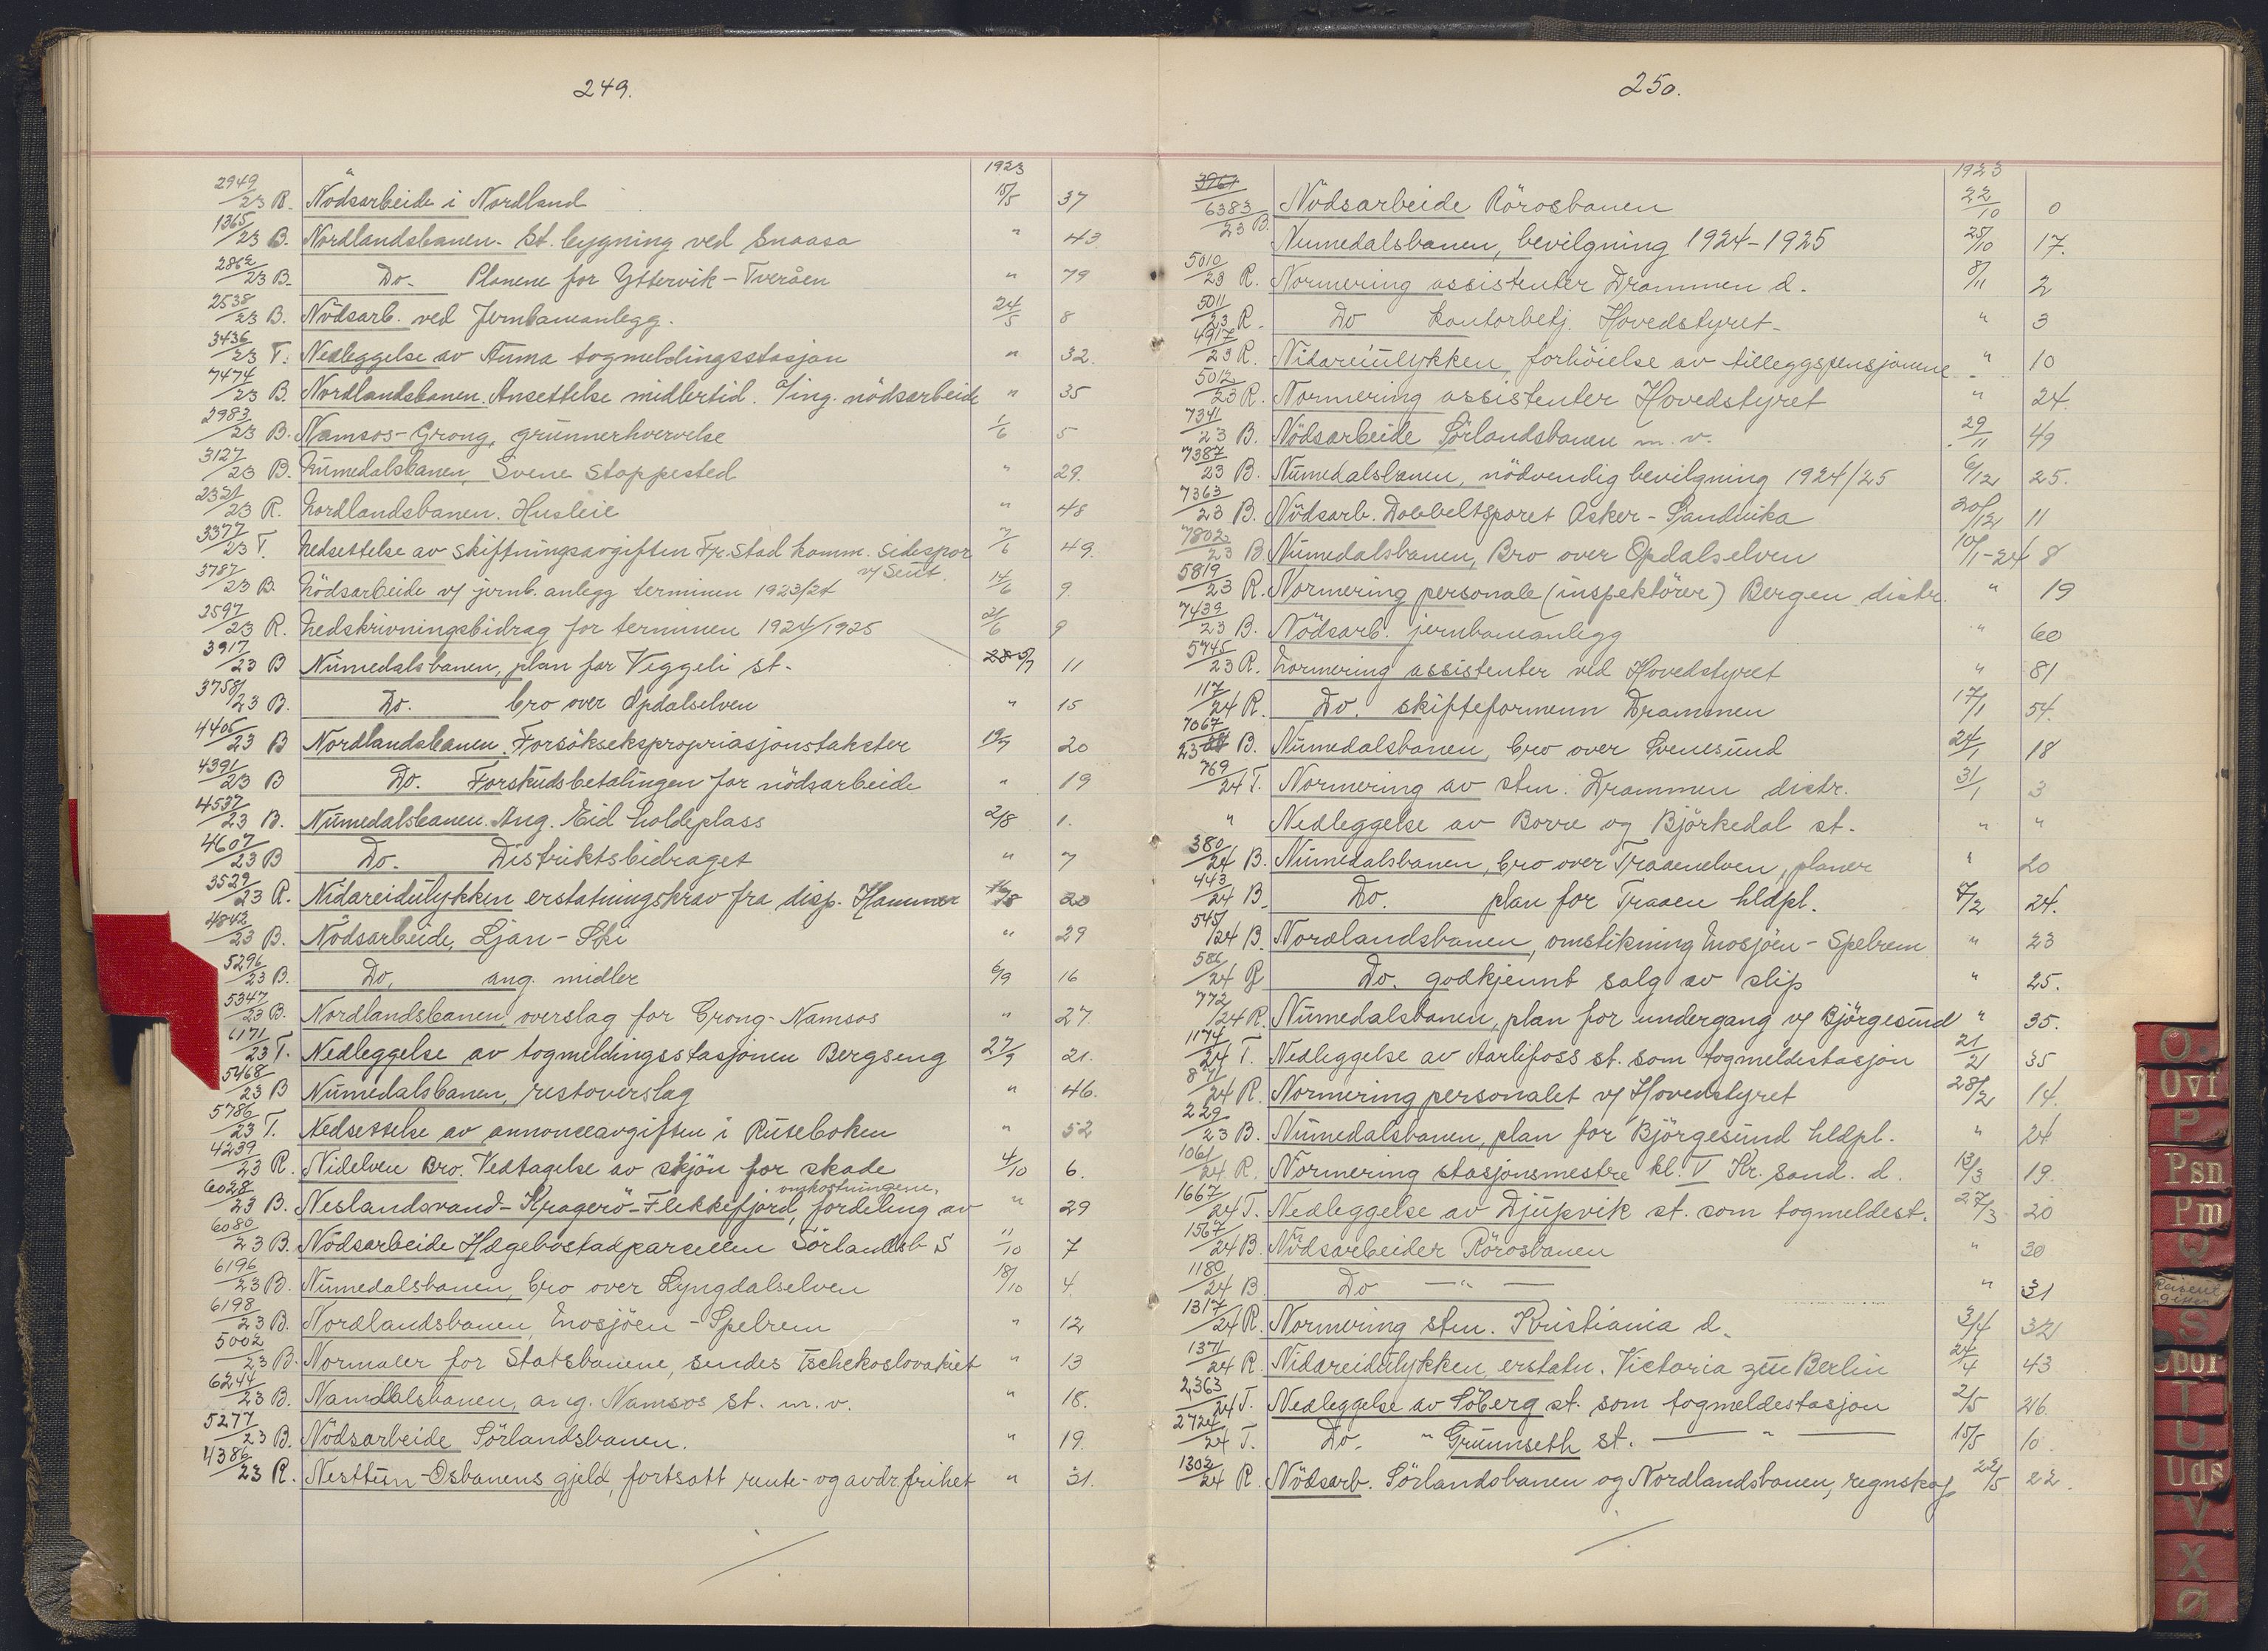 249.
1923
2949/23 B. Nödsarbeide i Nordland 15/5 37
1365/23 B. Nordlandsbanen. St. bygning ved Snaasa " 43
2862/23 B. Do. Planene for Yttervik - Tveråen " 79
2538/23 B. Nödsarb. ved Jernbaneanlegg. 24/5 8
3436/23 T. Nedleggelse av Auma togmeldingsstasjon " 32.
7474/23 B. Nordlandsbanen. Ansettelse midlertid. a/ing. nödsarbeide " 35
2983/23 B. Namsos - Grong, grunnerhvervelse 1/6 5
3127/23 B. Numedalsbanen, Svene Stoppested " 29.
2321/23 R. Nordlandsbanen. Husleie " 48
3377/23 T. Nedsettelse av skiftningsavgiften Fr.stad komm. sidespor 7/6 49.
v/ Seut.
3787/23 B. Nödsarbeide v/ jernb. anlegg terminen 1923/24 14/6 9
3597/23 R. Nedskrivningsbidrag for terminen 1924/1925 21/6 9
3917/23 B Numedalsbanen, plan for Veggeli st. 28 5/7 11
3758/23 B. Do. bro over Opdalselven " 15
4405/23 B Nordlandsbanen. Forsöksekspropriasjonstakster 19/7 20
4391/23 B Do. Forskudsbetalingen for nödsarbeide " 19
4537/23 B. Numedalsbanen. Ang. Eid holdeplass 2/8 1.
4607/23 B Do. Distriktsbidraget " 7
3529/23 R. Nidareidulykken erstatningskrav fra disp. Hammer 16/8 20
4842/23 B. Nödsarbeide, Ljan - Ski " 29
5296/23 B. Do. ang. midler 6/9 16
5347/23 B. Nordlandsbanen, overslag for Grong - Namsos " 27.
6171/23 T. Nedleggelse av togmeldingsstasjonen Bergseng 27/9 21.
5468/23 B Numedalsbanen, restoverslag " 46.
5786/23 T. Nedsettelse av annonceavgiften i Ruteboken " 52
4239/23 R. Nidelven Bro. Vedtagelse av skjön for skade 4/10 6.
omkostningene.
6028/23 B. Neslandsvand - Kragerö - Flekkefjord, fordeling av " 29
6080/23 B. Nödsarbeide Hægebostadparcellen Sörlandsb S 11/10 7
6196/23 B. Numedalsbanen, bro over Lyngdalselven 18/10 4.
6198/23 B. Nordlandsbanen, Mosjöen - Spelrem " 12
5002/23 B. Normaler for Statsbanene, sendes Tschekoslovakiet " 13
6244/23 B. Namdalsbanen, ang. Namsos st. m.v. " 18.
5277/23 B. Nödsarbeide Sörlandsbanen. " 19.
4386/23 R. Nesttun - Osbanens gjeld, fortsatt rente- og avdr. frihet " 31.
250.
1923
3961
6383/23 B. Nödsarbeide Rörosbanen 22/10 0
Numedalsbanen, bevilgning 1924-1925 25/10 17.
5010/23 R. Normering assistenter Drammen d. 8/11 2
5011/23 R. Do kontorbetj. Hovedstyret. " 3
4917/23 R. Nidareiulykken, forhöielse av tilleggspensjonene " 10
5012/23 R. Normering assistenter Hovedstyret " 24.
7341/23 B. Nödsarbeide Sörlandsbanen m.v. 29/11 49
7387/23 B. Numedalsbanen, nödvendig bevilgning 1924/25 6/12 25.
7363/23 B. Nödsarb. Dobbeltsporet Asker - Sandvika 20/12 11
7802/23 B Numedalsbanen, Bro over Opdalselven 10/1-24 8
5819/23 R. Normering personale (inspektörer) Bergen distr. " 19
7439/23 B. Nödsarb. jernbaneanlegg " 60
5745/23 R. Normering assistenter ved Hovedstyret " 81
117/24 R. Do. skifteformenn Drammen 17/1 54.
7067/23 24 B. Numedalsbanen, bro over Svenesund 24/1 18
769/24 T. Normering av stm. Drammen distr. 31/1 3
" Nedleggelse av Borre og Björkedal st. " "
380/24 B. Numedalsbanen, bro over Traaenelven, planer " 20
443/24 B. Do. plan for Traaen hldpl. 7/2 24.
545/24 B. Nordlandsbanen, omstikning Mosjöen - Spelrem " 23
586/24 R Do. godkjennt salg av slip " 25.
772/24 R. Numedalsbanen, plan for undergang v/ Björgesund " 35.
1174/24 T. Nedleggelse av Aarlifoss st. som togmeldestasjon 21/2 35
871/24 R. Normering personalet v/ Hovedstyret 28/2 14.
229/23 B. Numedalsbanen, plan for Björgesund hldpl. " 24
1061/24 R. Normering stasjonsmestre kl. V Kr. sand. d. 13/3 19.
1667/24 T. Nedleggelse av Djupvik st. som togmeldest. 27/3 20
1567/24 B. Nödsarbeider Rörosbanen " 30
1180/24 B. Do — " — " 31
1317/24 R. Normering stm. Kristiania d. 3/4 32
1371/24 R. Nidareidulykken, erstatn. Victoria zu Berlin 24/4 43
2363/24 T. Nedleggelse av Söberg st. som togmeldestasjon 2/5 26.
2724/24 T. Do. " Grunnseth st. — " — 15/5 10.
1302/24 R. Nödsarb. Sörlandsbanen og Nordlandsbanen, regnskap 22/5 22.
O.
Ovf
P
Psn
Pm
Q
S
Spor
T
U
Uds
V
X
Ø